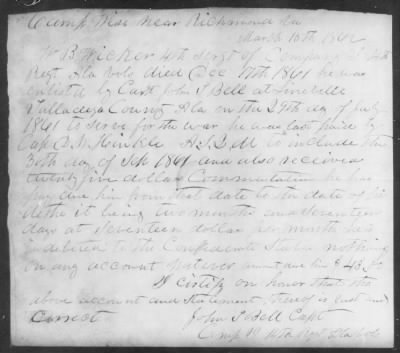 Camp Wise near Richmond Va
March 16th 1862
W B Wicker 4th Sergt of Company 14th
Regt Ala vols died Dec 17th 1861 he was
enlisted by Capt John T Bell at
Talladega County Ala on the 29th day of July
1861 to serve for the war he was last paid by
Capt to include the
30th day of 1861 and also received
twenty five dollars Commutation he has
pay due him from that date to the date of his
deth it being two months and seventeen
days at seventeen dollar per month he is
indebted to the Confederate States nothing
on any account whatever amount due him $ 43
I certify on honor that the
above account and statement thereof is Just and
Correct John T Bell Capt
Comp 14th Regt Ala vols